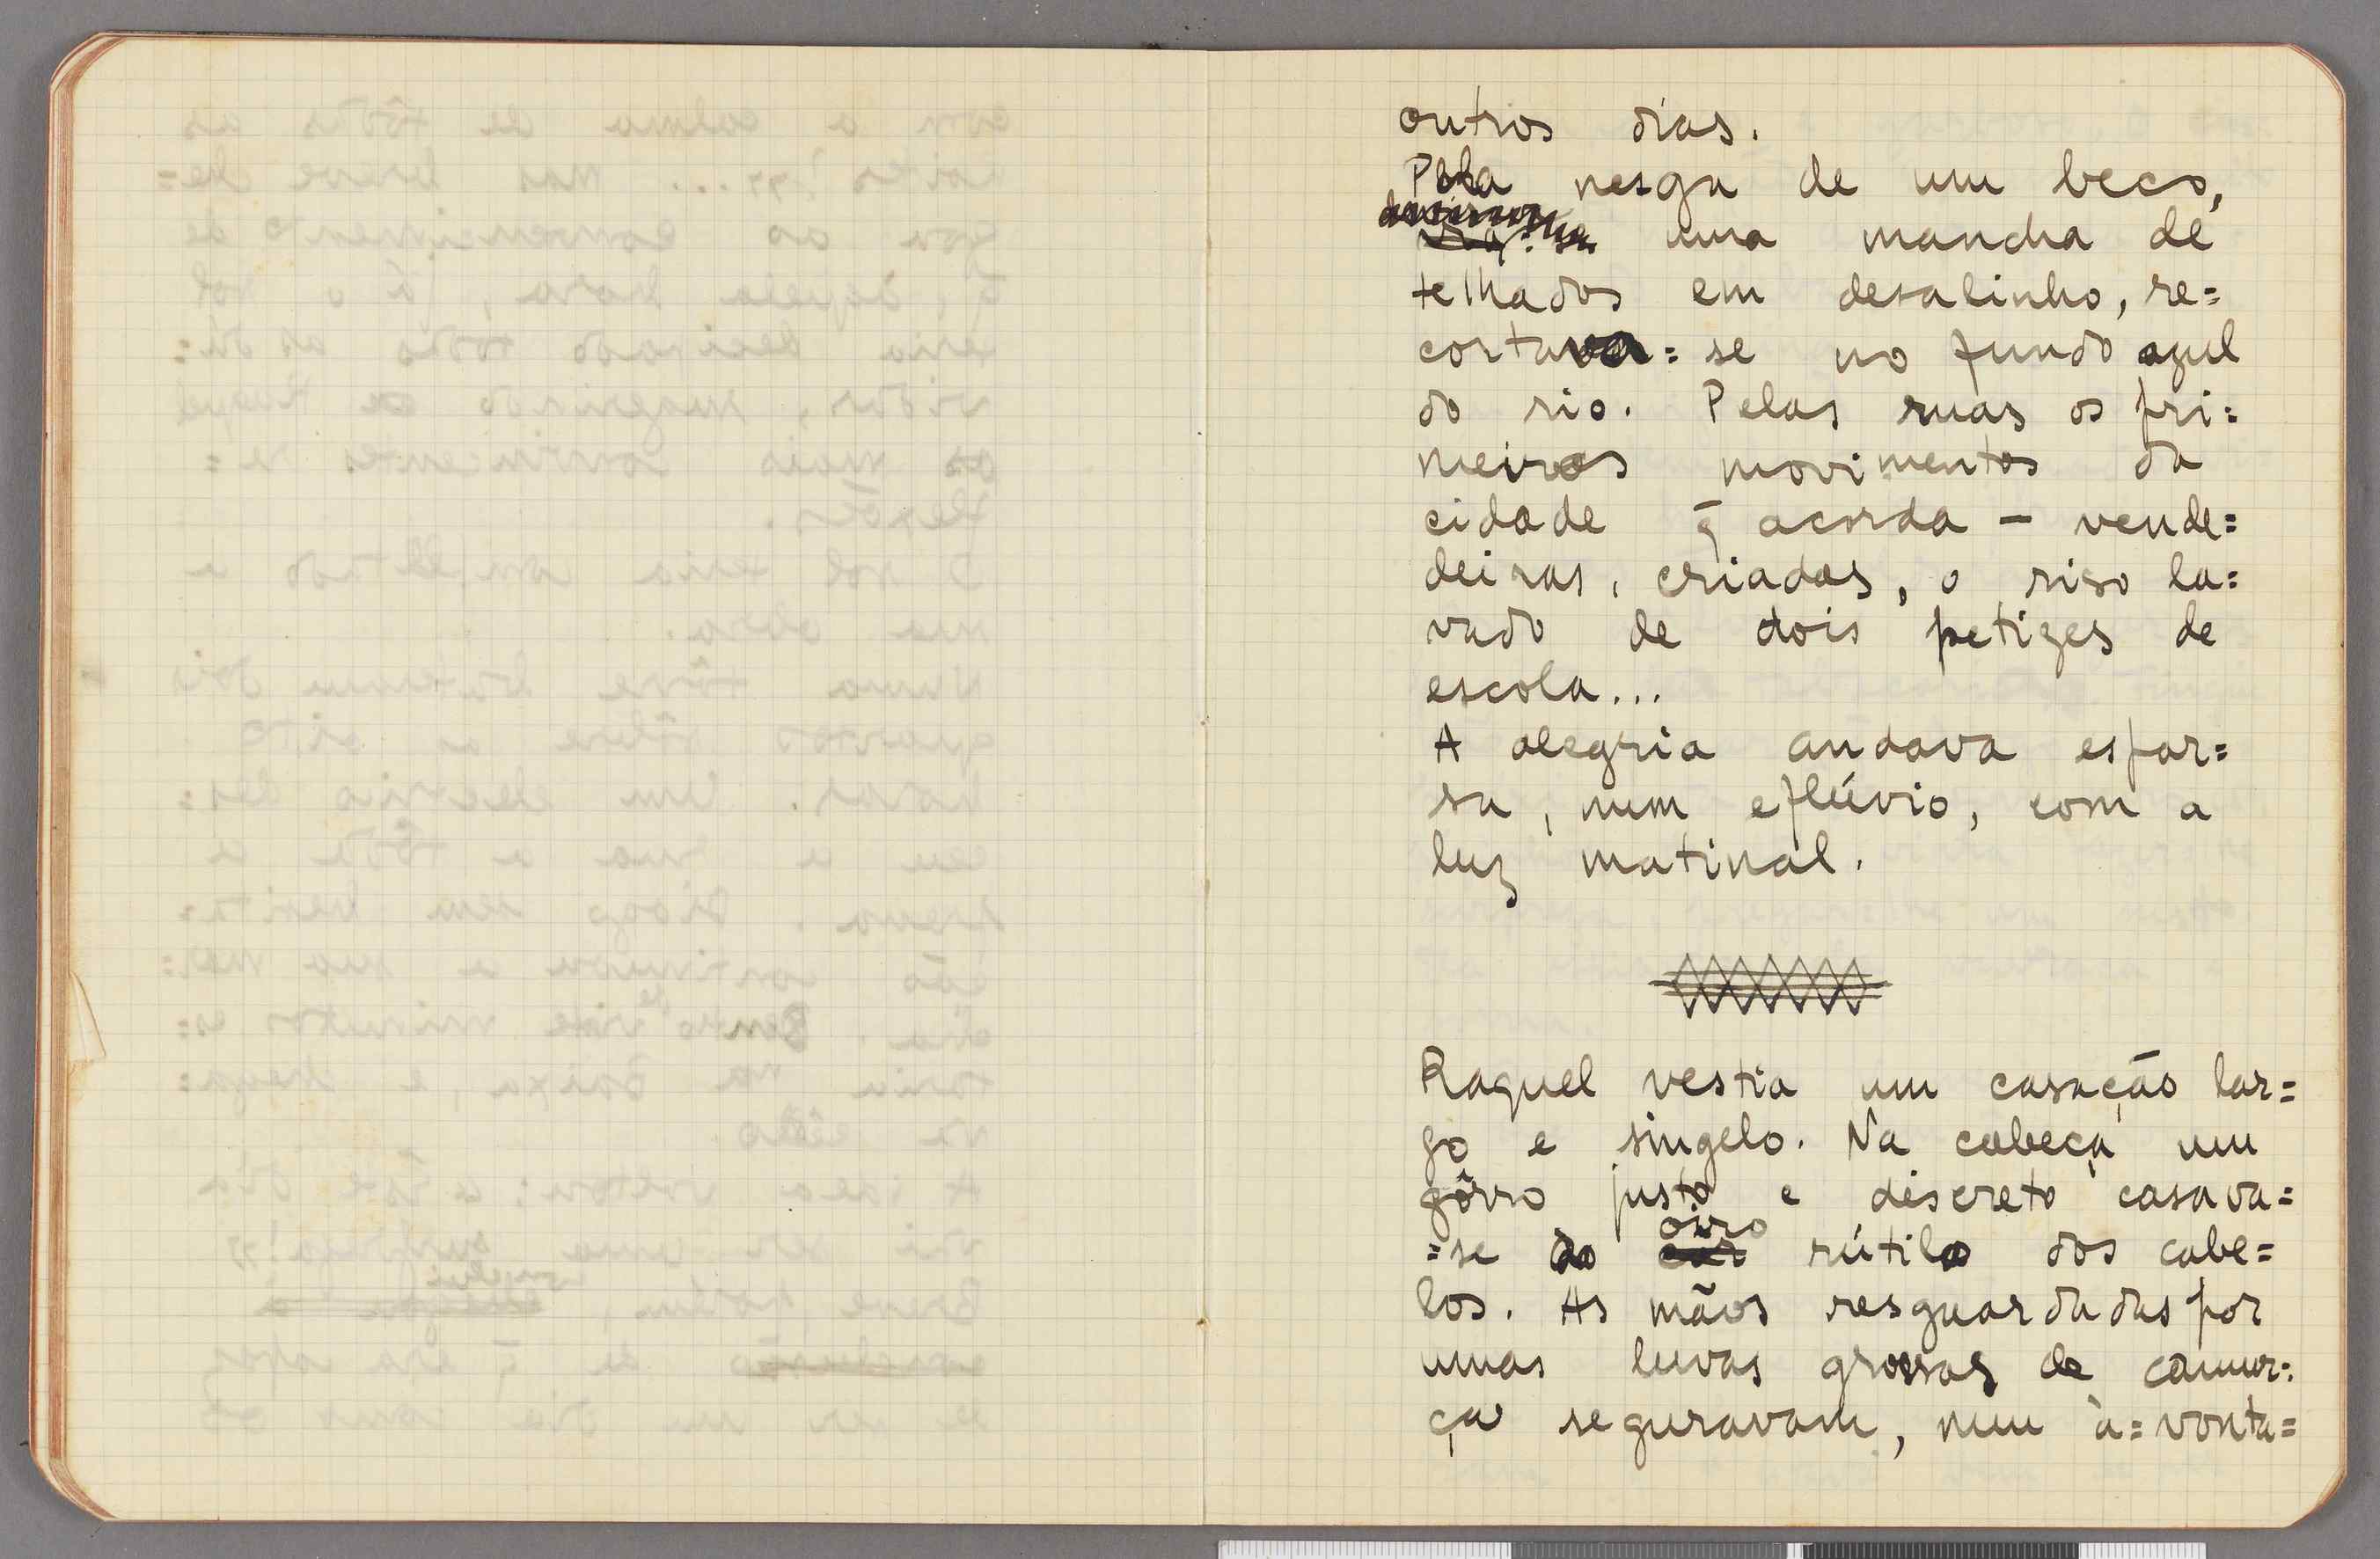 outros dias.
Pela nesga de um beco,
uma mancha de
telhados em desalinho, re=
cortava=se no fundo azul
do rio. Pelas ruas os pri=
meiros movimentos da
cidade q̃ acorda – vende=
deiras, criadas, o riso la=
vado de dois petizes de
escola...
A alegria andava espar=
sa, num eflúvio, com a
luz matinal.
Raquel vestia um casacão lar=
go e singelo. Na cabeça um
gôrro justo e discreto casava=
oiro
=se ao cor rútilo dos cabe=
los. As mãos resguardadas por
umas luvas grossas de camur=
ça seguravam, num à=vonta=